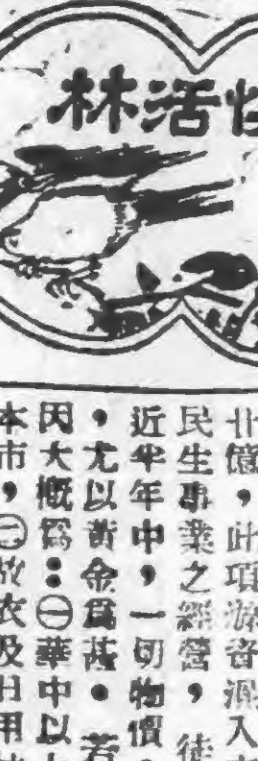 林活性
廿億，此項游資濕入
民生專業之經營，徒
近半年中，一切物價，
，尤以黃金爲甚。若
因大概爲：㊀華中以
本市，㊁故衣及日用